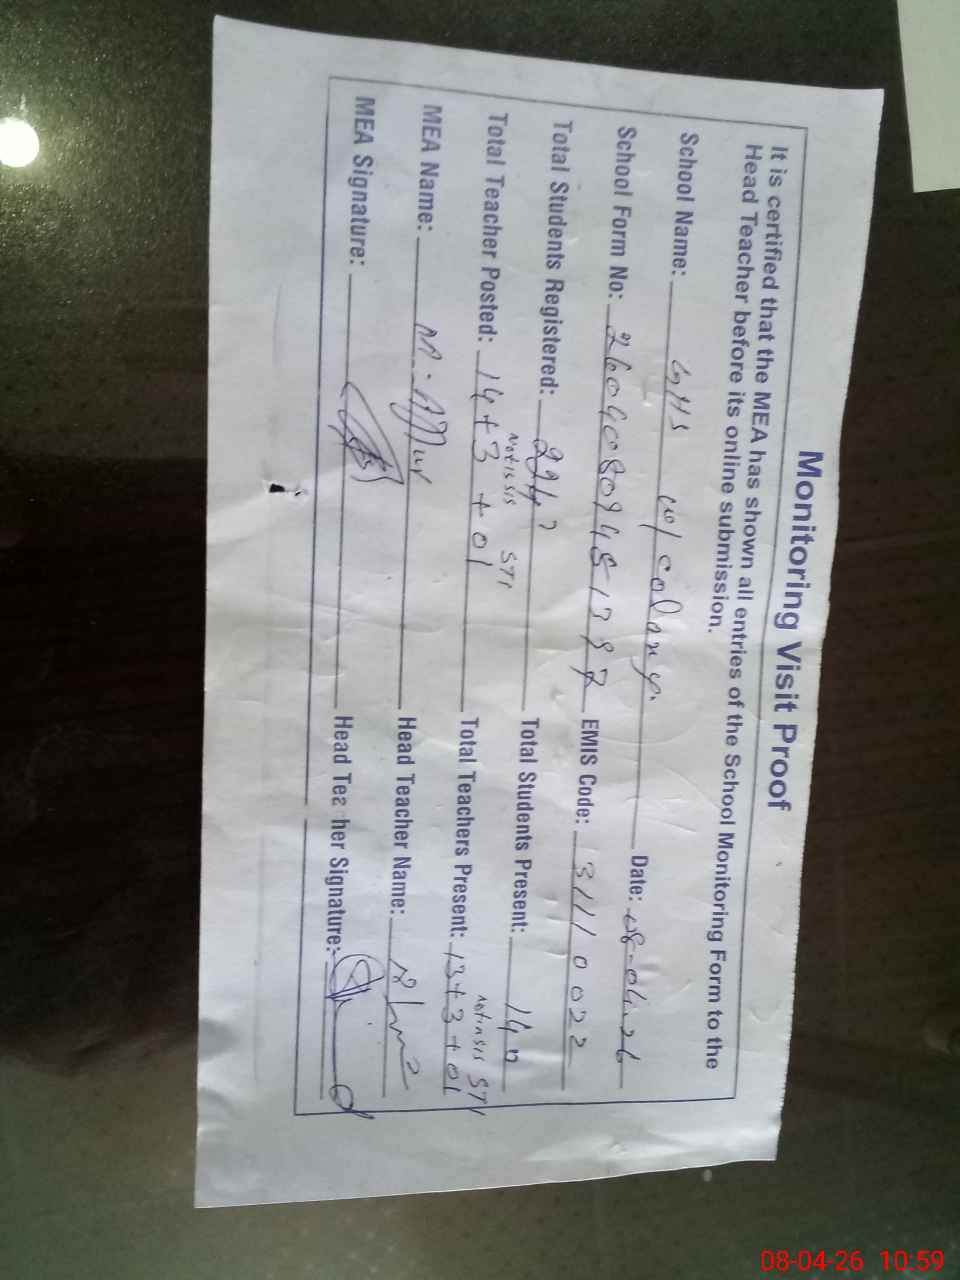 Monitoring Visit Proof
It is certified that the MEA has shown all entries of the School Monitoring Form to the
Head Teacher before its online submission.
School Name: GHS colony. Date: 08-04-26
School Form No: EMIS Code: 31110022
Total Students Registered: Total Students Present:
Not in SIS STI Not in SIS STI
Total Teacher Posted: 14+3+01 Total Teachers Present: 13+3+01
MEA Name: Head Teacher Name:
MEA Signature: Head Teacher Signature:
08-04-26 10:59